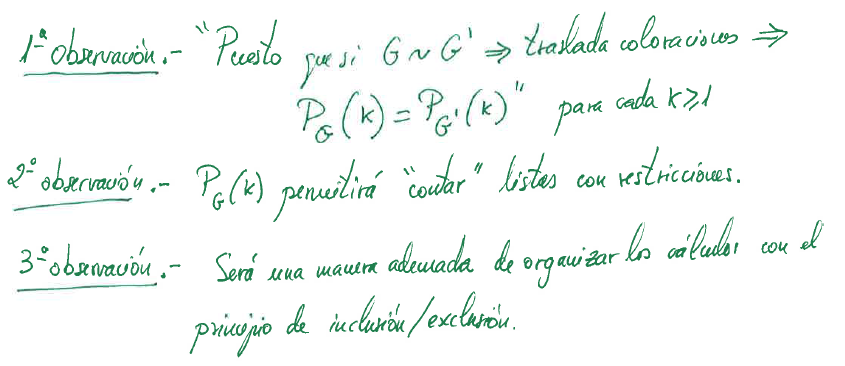 1ª Observación.- "Puesto que si G ~ G' ⇒ traslada coloraciones ⇒
P_G(k) = P_G'(k)" para cada k ≥ 1
2ª observación.- P_G(k) permitirá "contar" listas con restricciones.
3ª observación.- Será una manera adecuada de organizar los cálculos con el
principio de inclusión/exclusión.